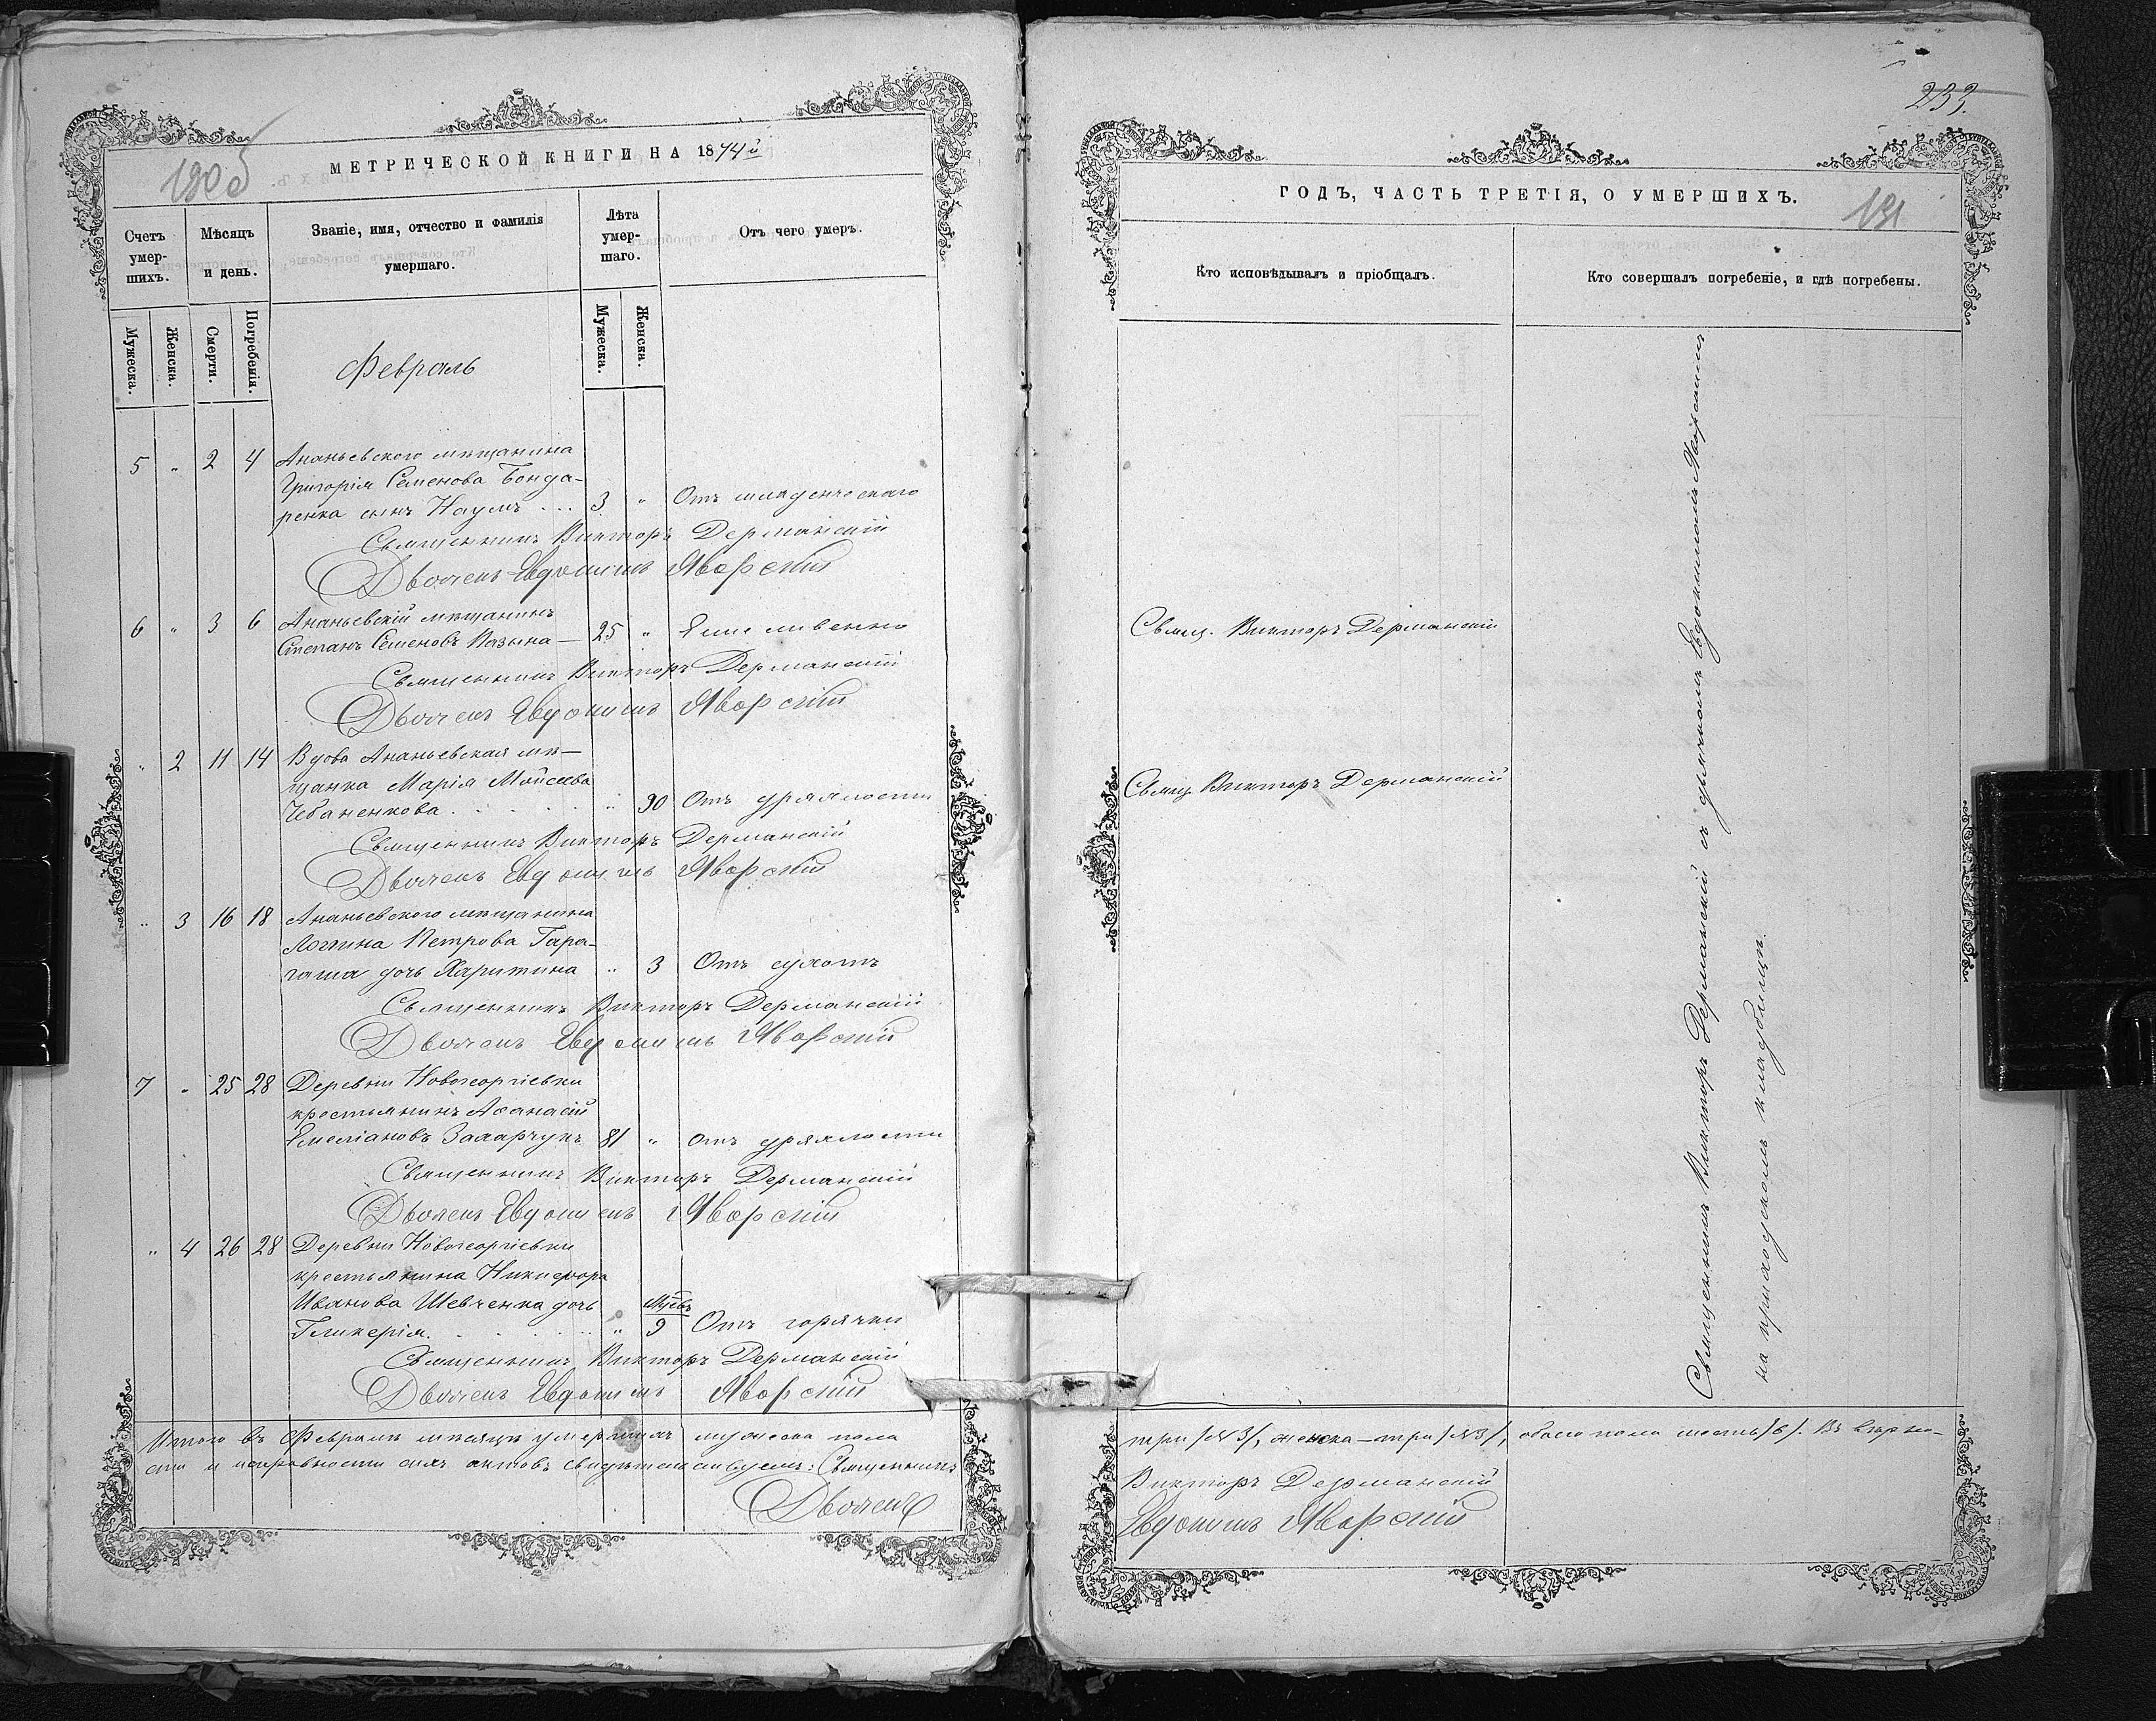 190 об
МЕТРИЧЕСКОЙ КНИГИ НА 1874й
Счетъ умер-шихъ.
Мѣсяцъ и день.
Званіе, имя, отчество и фамилія умершаго.
Лѣта умер-шаго.
Отъ чего умеръ.
Мужеска.
Женска.
Смерти.
Погребенія.
Мужеска.
Женска.
Февраль
5 " 2 4 Ананьевского мѣщанина
Григорія Семенова Бонда-
ренка сынъ Наумъ . . . 3 " Отъ младенческаго
Священникъ Викторъ Дерманскій
Дьячекъ Евдокимъ Яворскій
6 " 3 6 Ананьевскій мѣщанинъ
Степанъ Семеновъ 25 "
Священникъ Викторъ Дерманскій
Дьячекъ Евдокимъ Яворскій
" 2 11 14 Вдова Ананьевская мѣ-
щанка Марія Мойсеева
Чебаненкова . . . . . " 90 Отъ дряхлости
Священникъ Викторъ Дерманскій
Дьячекъ Евдокимъ Яворскій
" 3 16 18 Ананьевского мѣщанина
Логгина Петрова Гара-
гаша дочь Харитина " 3 Отъ сухотъ
Священникъ Викторъ Дерманскій
Дьячекъ Евдокимъ Яворскій
7 " 25 28 Деревни Новогеоргіевки
крестьянинъ Аѳанасій
Емеліановъ Захарчукъ 81 " Отъ дряхлости
Священникъ Викторъ Дерманскій
Дьячекъ Евдокимъ Яворскій
" 4 26 28 Деревни Новогеоргіевки
крестьянина Никифора
Иванова Шевченка дочь
Гликерія. . . . . . " Мцевъ 9 Отъ горячки
Священникъ Викторъ Дерманскій
Дьячекъ Евдокимъ Яворскій
Итого въ Февралѣ мѣсяцѣ умершихъ мужеска пола
сти и исправности сихъ актовъ свидѣтельствуемъ: Священникъ
Дьячекъ
233.
ГОДЪ, ЧАСТЬ ТРЕТІЯ, О УМЕРШИХЪ.
191
Кто исповѣдывалъ и пріобщалъ.
Кто совершалъ погребеніе, и гдѣ погребены.
Свящ. Викторъ Дерманскій
Свящ. Викторъ Дерманскій
Священникъ Викторъ Дерманскій съ дьячкомъ Евдокимомъ Яворскимъ
на приходскомъ кладбищѣ.
три /№ 3/, женска – три /№ 3/, обоего пола шесть /6/. Въ вѣрно-
Викторъ Дерманскій
Евдокимъ Яворскій